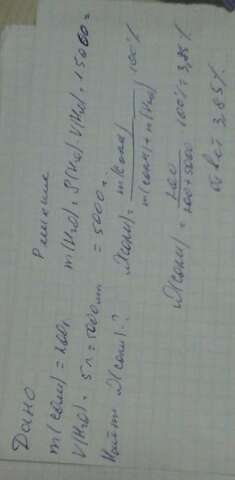 Дано
m(соли) = 200г
V(H₂O) = 5л = 5000мл
Найти ω(соли)-?
Решение
m(H₂O) = ρ(H₂O)·V(H₂O) = 1·5000 =
= 5000г
ω(соли) = m(соли) / m(соли) + m(H₂O) · 100%
ω(соли) = 200 / 200+5000 · 100% = 3,85%
ответ 3,85%